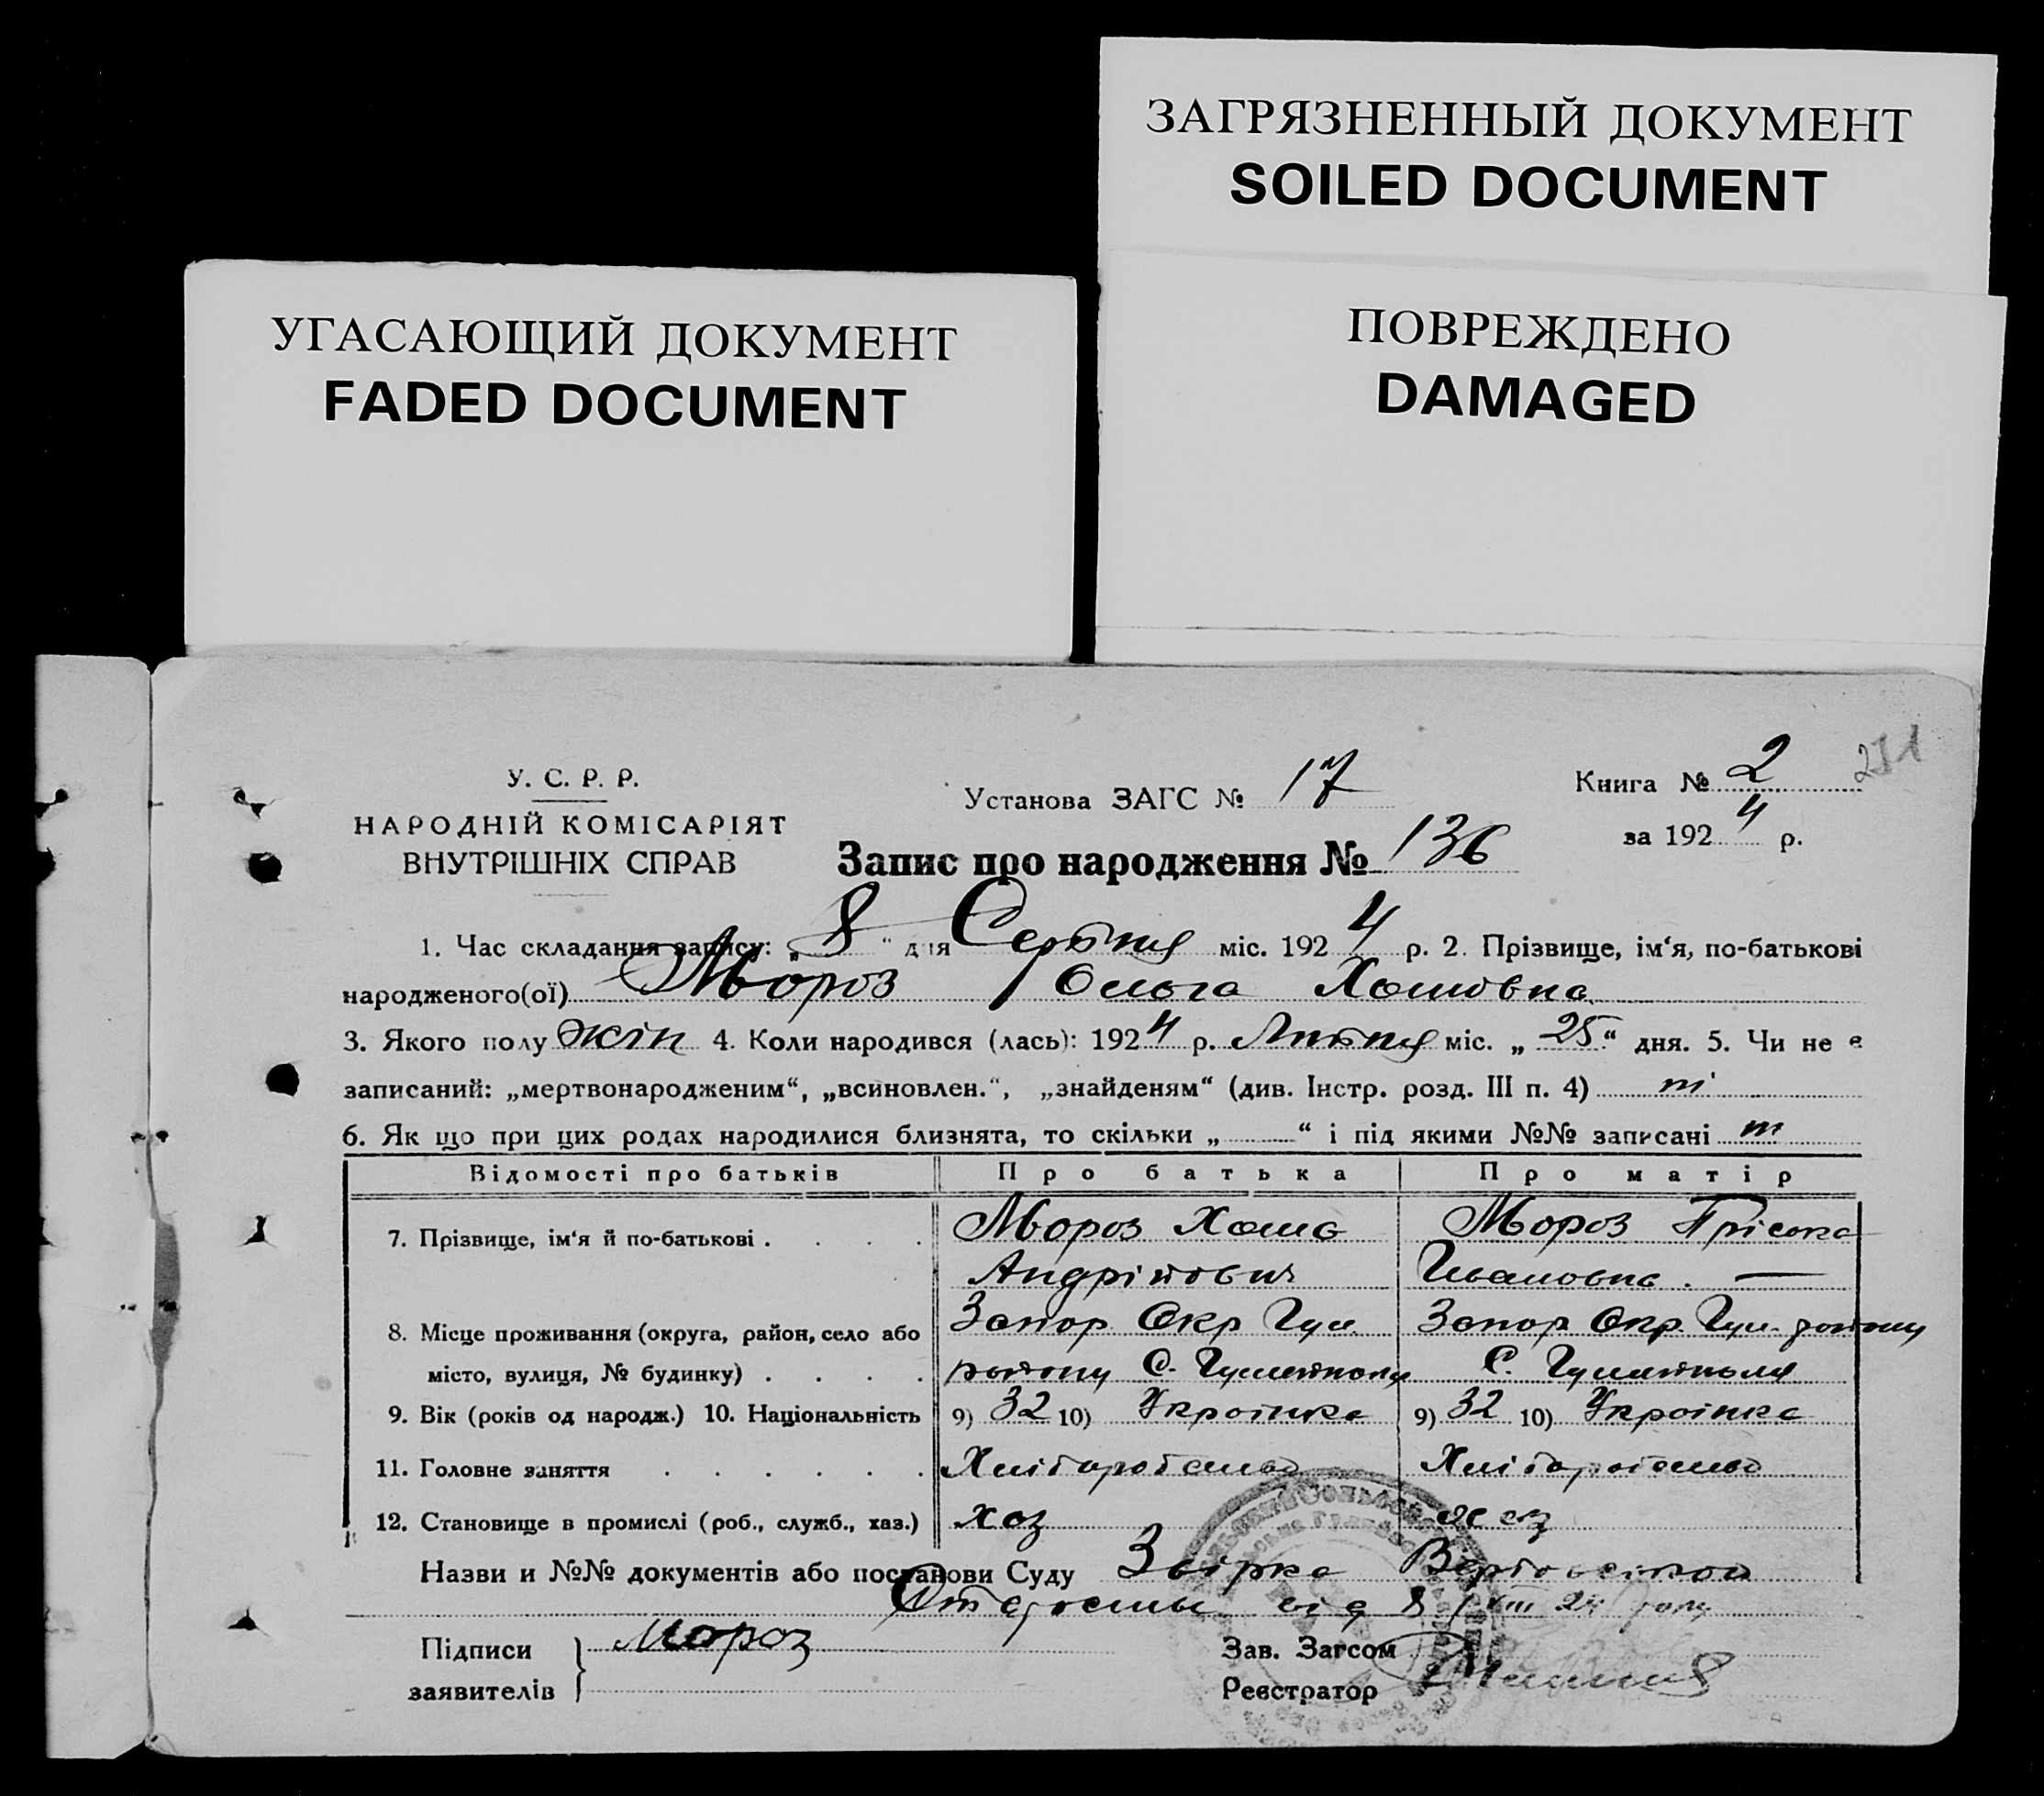 ЗАГРЯЗНЕННЫЙ ДОКУМЕНТ
SOILED DOCUMENT
УГАСАЮЩИЙ ДОКУМЕНТ
FADED DOCUMENT
ПОВРЕЖДЕНО
DAMAGED
У. С. Р. Р.
НАРОДНІЙ КОМІСАРІЯТ
ВНУТРІШНІХ СПРАВ
Установа ЗАГС № 17
Книга № 2
за 1924 р.
Запис про народження № 136
1. Час складання запису: „8“ дня Серпня міс. 1924 р. 2. Прізвище, ім‘я, по-батькові
народженого(ої) Мороз Ольга Хомовна
3. Якого полу жін 4. Коли народився (лась): 1924 р. Липня міс. „25“ дня. 5. Чи не е
записаний: „мертвонародженим“, „всиновлен.“, „знайденям“ (див. Інстр. розд. III п. 4) ні
6. Як що при цих родах народилися близнята, то скільки „ “ і під якими №№ записані ні
Відомості про батьків Про батька Про матір
7. Прізвище, ім‘я й по-батькові . . . . Мороз Хома Мороз
Андрійович Ивановна. —
8. Місце проживання (округа, район, село або Запор Окр Гул Запор Окр. Гул. району
місто, вулиця, № будинку) . . . . району С. Гуляйполя С. Гуляйполя
9. Вік (років од народж.) 10. Національність 9) 32 10) Українка 9) 32 10) Українка
11. Головне заняття . . . . . . Хліборобство Хліборобство
12. Становище в промислі (роб., служб., хаз.) хоз
Назви и №№ документів або постанови Суду
від 8/VIII 24 року
Підписи Мороз
заявителів
Зав. Загсом
Реєстратор